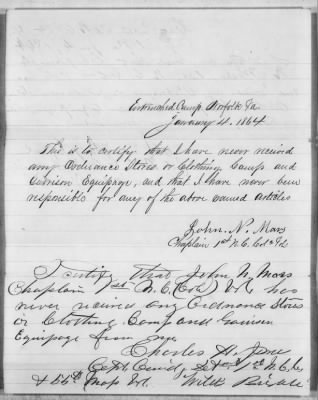 Entrenched Camp Norfolk Va
January 4. 1864
This is to certify that I have never received
any Ordnance Stores or Clothing, Camp and
Garrison Equipage, and that I have never been
responsible for any of the above named articles
John. N. Mars
Chaplain 1st N.C. Cold Vol
I certify that John N. Mars
Chaplain 1st N.C. (Cold) Vol. has
never received any Ordnance Stores
or Clothing Camp and Garrison
Equipage from me.
Charles H.
Capt. Comd, 1st N.C.
& 55th Mass Vol.